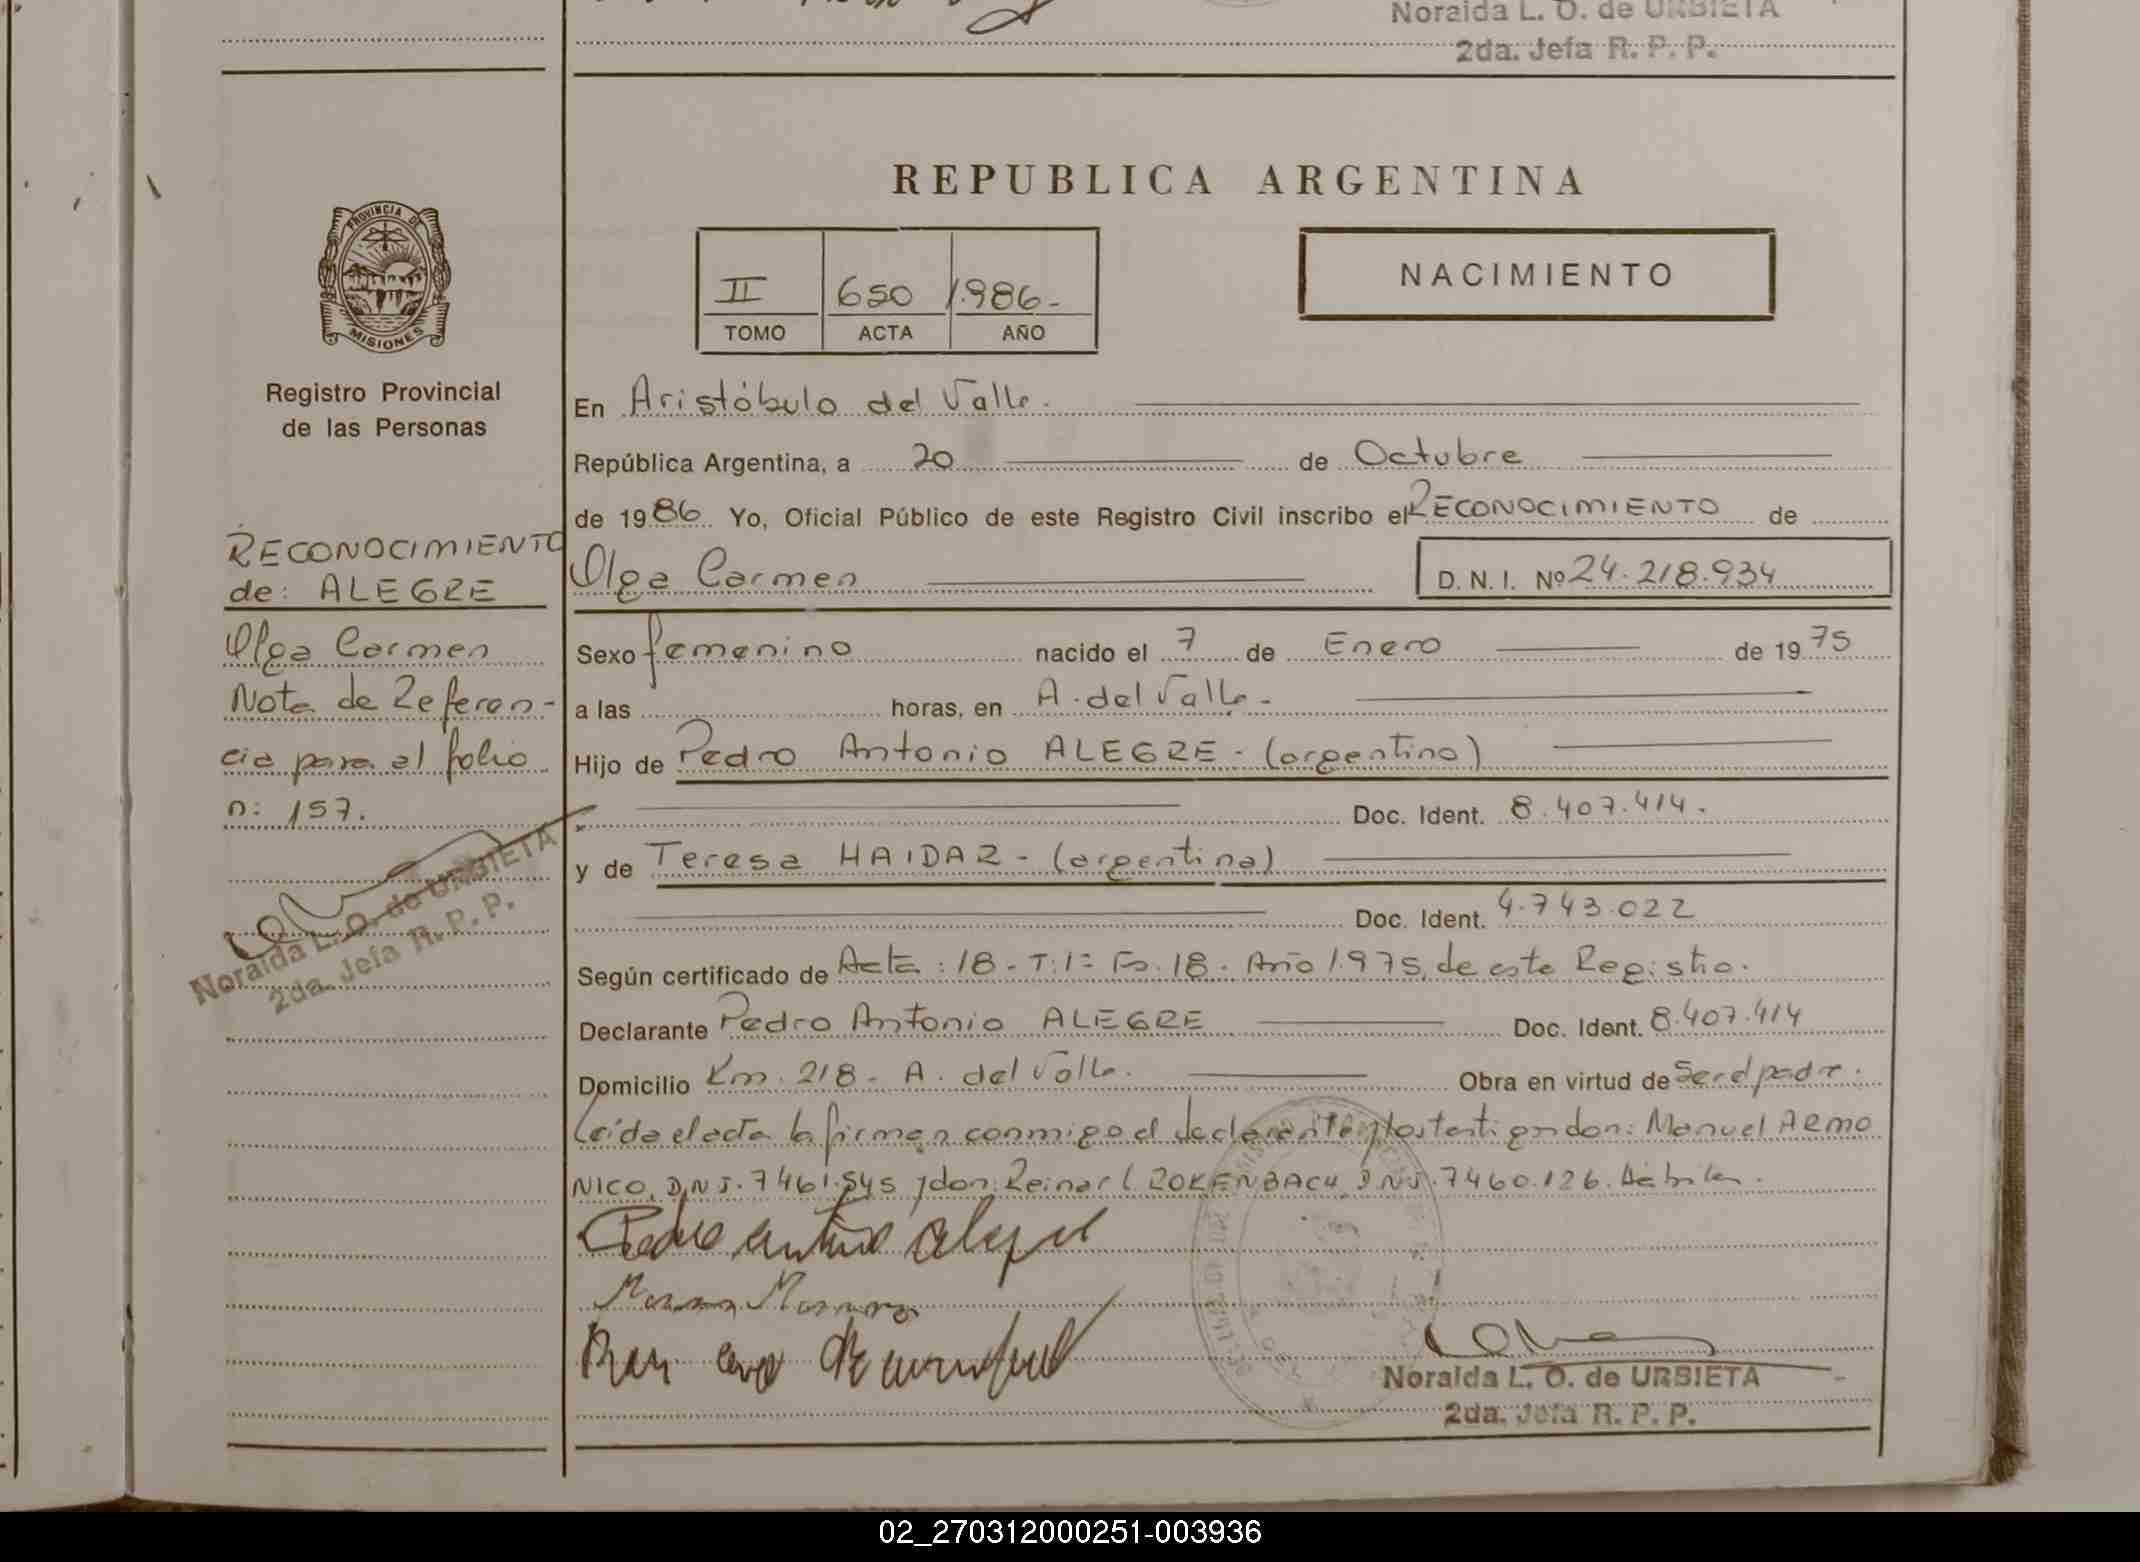 Noraida L. O. de URBIETA
2da. Jefa R. P. P.
REPUBLICA ARGENTINA
PROVINCIA DE
MISIONES
II 650 1.986-
TOMO ACTA AÑO
NACIMIENTO
Registro Provincial
de las Personas
RECONOCIMIENTO
de: ALEGRE
Olga Carmen
Nota de Referen-
cia para el folio
n: 157.
Noraida L. O. de URBIETA
2da. Jefa R. P. P.
En Aristóbulo del Valle.
República Argentina, a 20 de Octubre
de 1986 Yo, Oficial Público de este Registro Civil inscribo el RECONOCIMIENTO de
Olga Carmen D. N. I. Nº 24.218.934
Sexo femenino nacido el 7 de Enero de 1975
a las horas, en A. del Valle-
Hijo de Pedro Antonio ALEGRE- (argentino)
Doc. Ident. 8.407.414.
y de Teresa HAIDAR- (argentina)
Doc. Ident. 4.743.022
Según certificado de Acta: 18- T: 1º Fo. 18- Año 1.975, de este Registro.
Declarante Pedro Antonio ALEGRE Doc. Ident. 8.407.414
Domicilio Km. 218- A. del Valle. Obra en virtud de Ser el padre.
Leída el acta la firman conmigo el declarante y los testigos don: Manuel ARMO
NICO, DNI. 7461.545 y don: ROKENBACH, DNI. 7460.126. Hábiles.
Pedro antonio alegre
Noraida L. O. de URBIETA
2da. Jefa R. P. P.
02_270312000251-003936